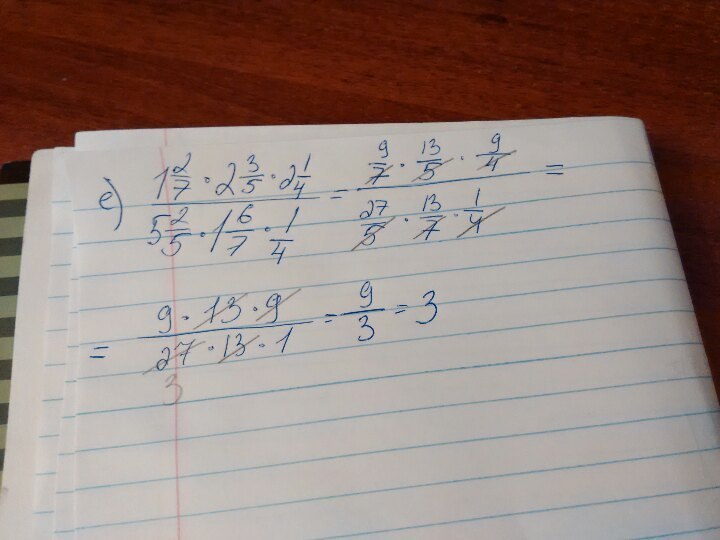 е) (1 2/7 · 2 3/5 · 2 1/4) / (5 2/5 · 1 6/7 · 1/4) = (9/7 · 13/5 · 9/4) / (27/5 · 13/7 · 1/4) =
= (9 · 13 · 9) / (27 · 13 · 1) = 9/3 = 3
3